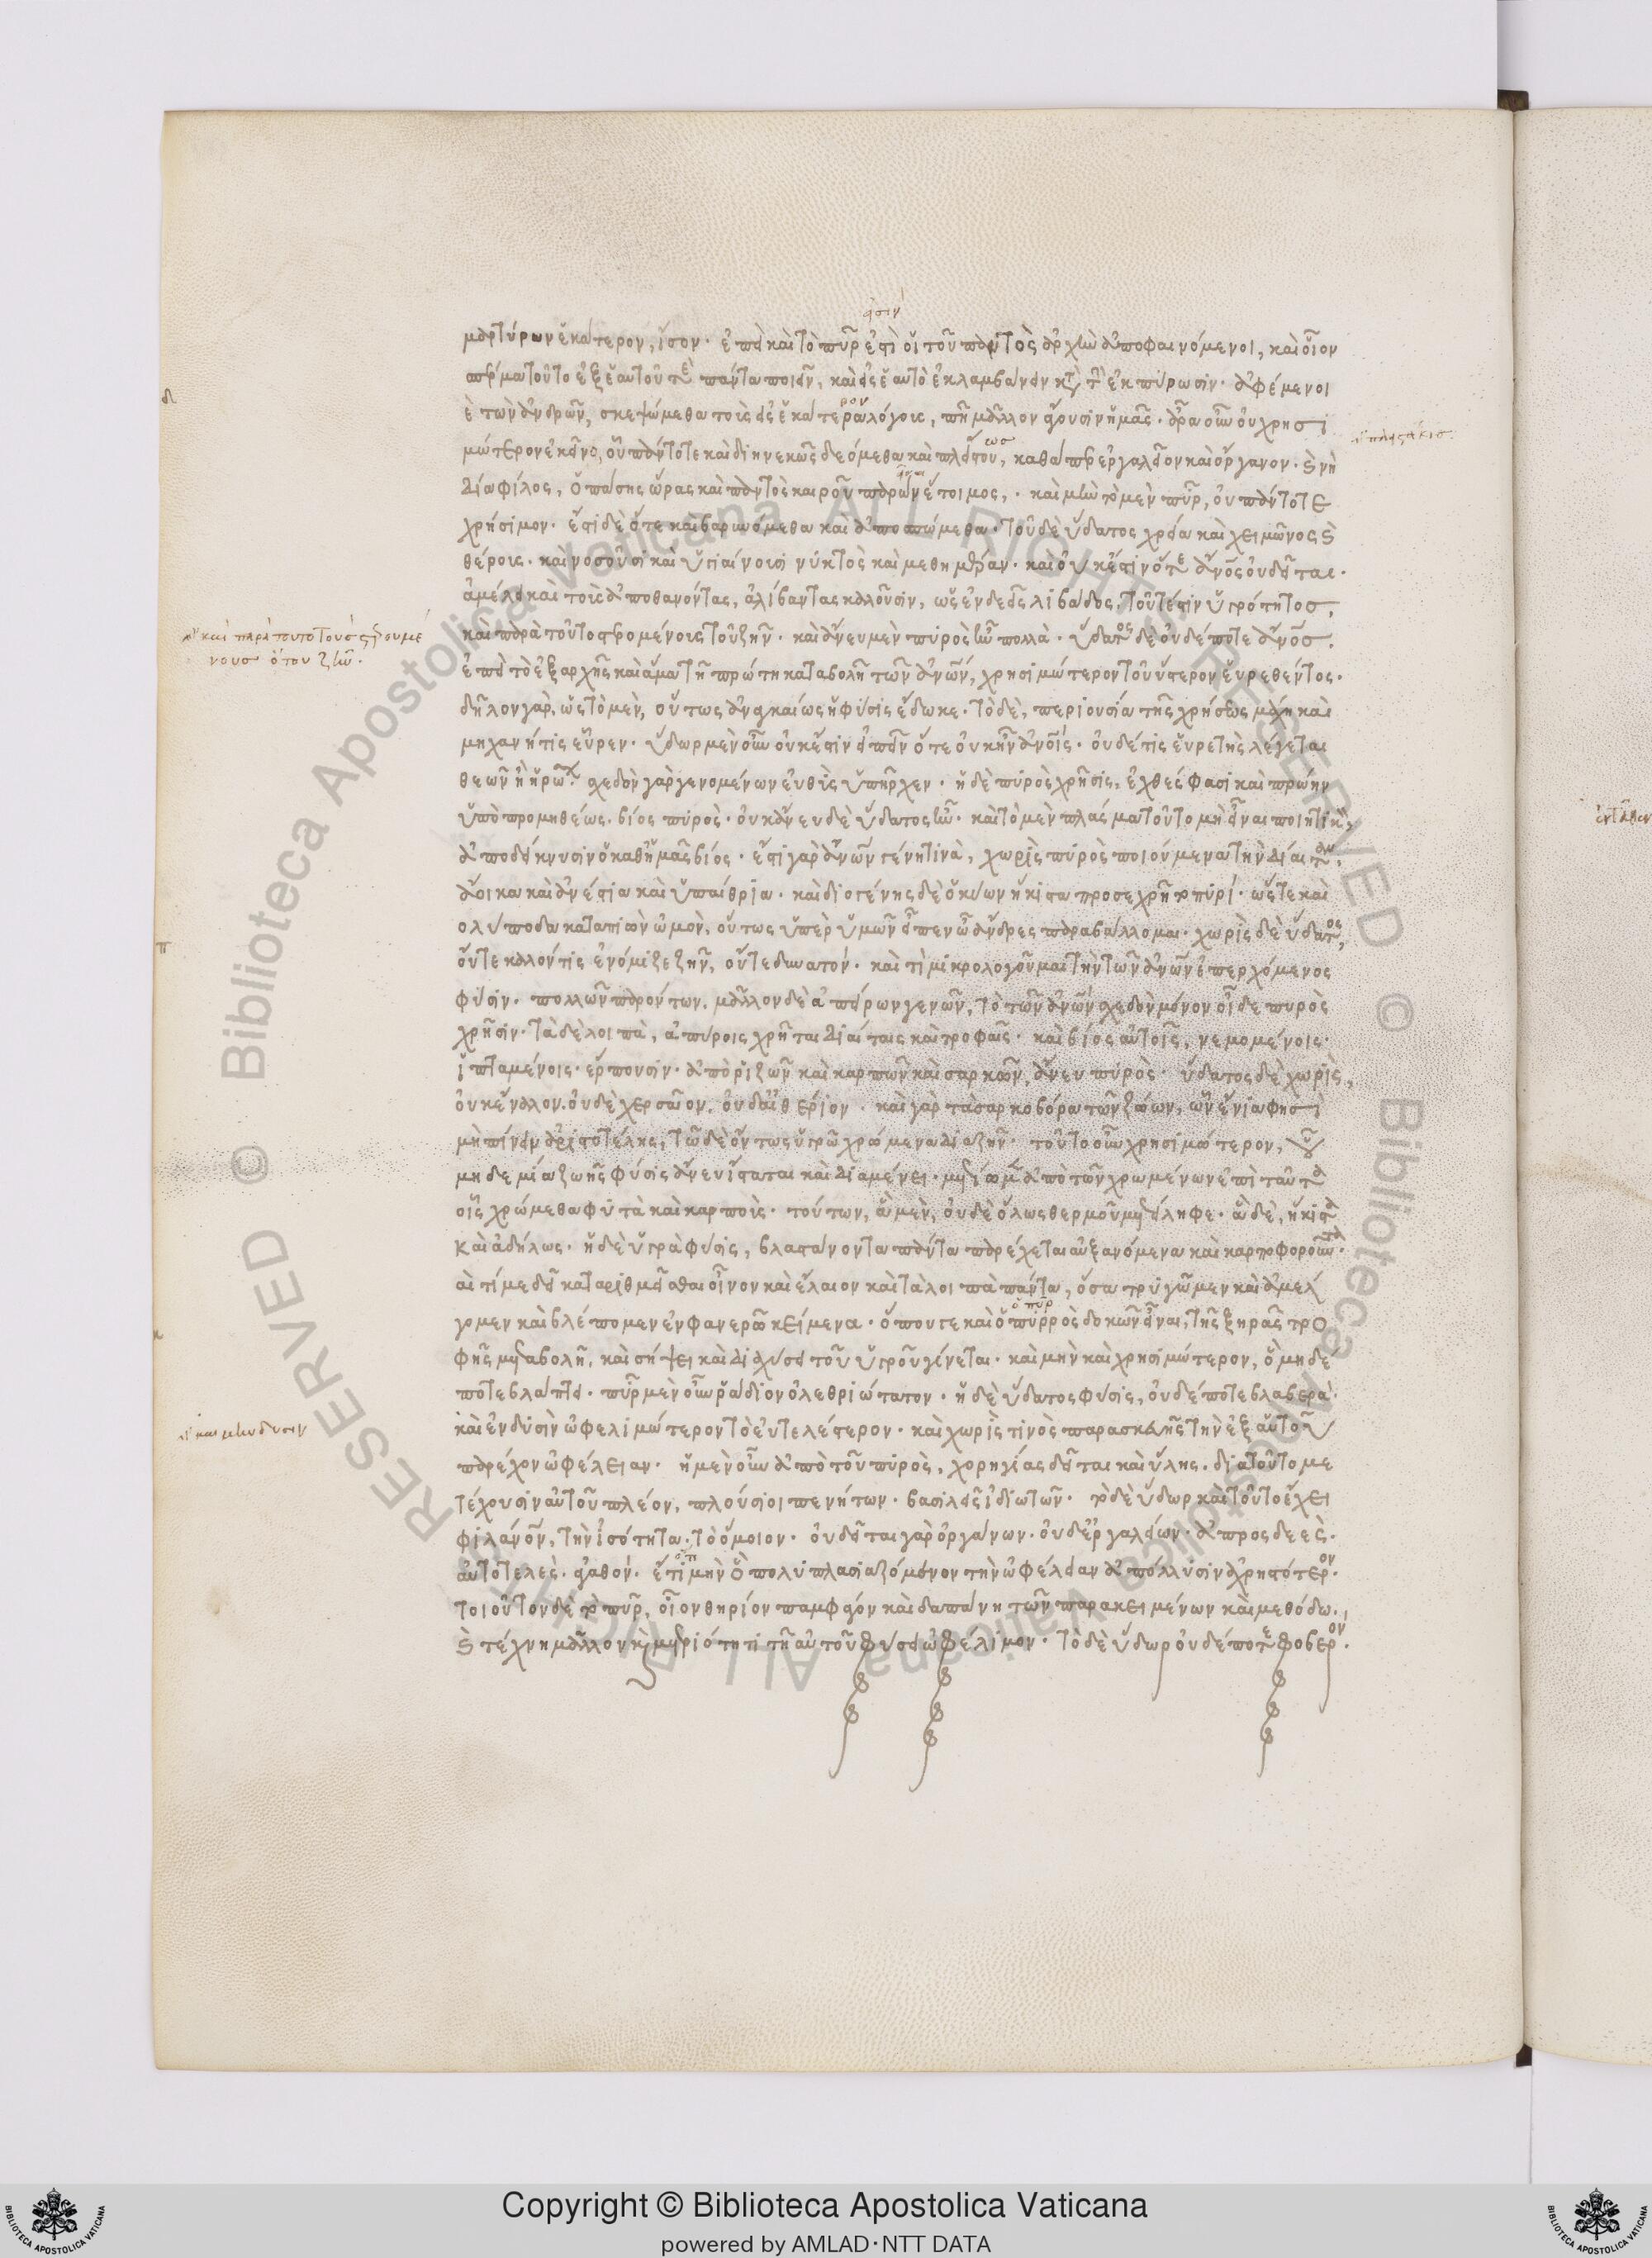 φασιν
μαρτύρων ἑκάτερον, ἴσον. ἐπεὶ καὶ τὸ πῦρ ἐστὶ οἱ τοῦ παντὸς ἀρχὴν ἀποφαινόμενοι, καὶ οἷον
σπέρμα τοῦτο ἐξ ἑαυτοῦ τὲ πάντα ποιεῖν, καὶ εἰς ἑαυτὸ ἐκλαμβάνειν κατὰ τὴν ἐκπύρωσιν. ἀφέμενοι
ὲ τῶν ἀνδρῶν, σκεψώμεθα τοὺς εἰς ἑκάτερον λόγοις, πῆ μᾶλλον ἄγουσιν ἡμᾶς. ἆρα οὖν οὐ χρησι
μώτερον ἐκεῖνο, οὗ πάντοτε καὶ διηνεκῶς δεόμεθα καὶ πλείστου, καθάπερ ἐργαλεῖον καὶ ὄργανον. καὶ νὴ
Δία φίλος, ὁ πάσης ὥρας καὶ παντὸς καιροῦ παρὼν ἕτοιμος,. καὶ μὴν τὸ μὲν πῦρ, οὐ πάντοτε
χρήσιμον. ἔστι δὲ ὅτε καὶ βαρυνόμεθα καὶ ἀποσπώμεθα. τοῦ δὲ ὕδατος χρεία καὶ χειμῶνος καὶ
θέροις. καὶ νοσοῦσι καὶ ὑγιαίνουσι νύκτὸς καὶ μεθημέραν. καὶ οὐκ ἔστιν ὅτε ἄνος οὐδεῖται.
ἀμέλει καὶ τοὺς ἀποθανόντας, ἀλίβαντας καλοῦσιν, ὡς ἐνδεεῖς λιβάδος. τοῦτέστιν ὑγρότητος,
καὶ παρὰ τοῦτο στερομένοις τοῦ ζῆν. καὶ ἄνευ μὲν πύρὸς ἦν πολλὰ. ὕδατος δὲ οὐδέποτε ἄνος.
ἐπεὶ τὸ ἐξαρχῆς καὶ ἅμα τῆ πρώτη καταβολῆ τῶν ἀνῶν, χρησιμώτερον τοῦ ὕστερον εὑρεθέντος.
δῆλον γὰρ, ὡς τὸ μὲν, οὕτως ἀναγκαίως ἡ φύσις ἔδωκε. τὸ δὲ, περιουσία τῆς χρήσεως μάχη καὶ
μηχανή τις εὗρεν. ὕδωρ μὲν οὖν οὐκ ἔστιν εἰπεῖν ὅτε οὐκ ἦν ἀνοις. οὐδέ τις εὑρετὴς λέγεται
θεῶν ἢ ἡρώων. σχεδὸν γὰρ γενομένων εὐθὺς ὑπῆρχεν. ἡ δὲ πύρὸς χρῆσις, ἐχθές φασι καὶ πρώην
ὑπὸ προμηθέως. βίος πύρὸς. οὐκ ἄνευ δὲ ὕδατος ἦν. καὶ τὸ μὲν πλάσμα τοῦτο μὴ εἶναι ποιητικὸν,
ἀποδείκνυσιν ὁ καθ ἡμᾶς βίος. ἔστι γὰρ ἀνῶν γένη τινὰ, χωρὶς πύρὸς ποιούμενα τὴν δίαιταν,
ἄοικα καὶ ἀνέστια καὶ ὑπαίθρια. καὶ διογένης δὲ ὁ κύων ἥκιστα προσεχρῆτο πύρί. ὥστε καὶ
πολύποδα καταπιὼν ὠμὸν, οὕτως ὑπὲρ ὑμῶν εἶπεν ὦ ἄνδρες παραβάλλομαι. χωρὶς δὲ ὕδατος,
οὔτε καλόν τις ἐνόμιζε ζῆν, οὔτε δυνατόν. καὶ τί μικρολογοῦμαι τὴν τῶν ἀνῶν ἐπερχόμενος
φύσιν. πολλῶν παρόντων. μᾶλλον δὲ ἀπείρων γενῶν, τὸ τῶν ἀνῶν σχεδὸν μόνον οἶδε πυρὸς
χρῆσιν. τὰ δὲ λοιπὰ, ἀπύροις χρῆται διαίταις καὶ τροφαῖς. καὶ βίος αὐτοῖς, νεμομένοις.
ἱπταμένοις. ἕρπουσιν. ἀπὸ ῥιζῶν καὶ καρπῶν καὶ σαρκῶν, ἄνευ πύρὸς. ὕδατος δὲ χωρὶς,
οὐκ ἔναλον. οὐδὲ χερσαῖον. οὐδ αἰθέριον. καὶ γὰρ τὰ σαρκοβόρα τῶν ζώων, ὧν ἔνια φησὶ
μὴ πίνειν ἀριστοτέλης, τῷ δὲ ὄντως ὑγρῷ χρώμενα διαζῆν. τοῦτο οὖν χρησιμώτερον, οὗ
μηδεμία ζωῆς φύσις ἄνευ ἵσταται καὶ διαμένει. μετίωμεν ἀπὸ τῶν χρωμένων ἐπὶ ταῦτα
οἷς χρώμεθα φυτὰ καὶ καρποὺς. τούτων, ἃ μὲν, οὐδὲ ὅλως θερμοῦ μετείληφε. ἃ δὲ, ἥκιστα
καὶ ἀδήλως. ἡ δὲ ὑγρὰ φύσις, βλαστάνοντα πάντα παρέχεται αὐξανόμενα καὶ καρποφοροῦντα.
αὶ τί με δεῖ καταριθμεῖσθαι οἶνον καὶ ἔλαιον καὶ τὰ λοιπὰ πάντα, ὅσα τρυγῶμεν καὶ ἀμέλ
γομεν καὶ βλέπομεν ἐν φανερῷ κείμενα. ὅπουγε καὶ ὁ πυρρὸς δοκῶν εἶναι, τῆς ξηρᾶς τρο
φῆς μεταβολῆ. καὶ σήψει καὶ διαχύσει τοῦ ὑγροῦ γίνεται. καὶ μὴν καὶ χρησιμώτερον, ὃ μηδέ
ποτε βλάπτει. πῦρ μὲν οὖν ῥάδιον ὀλεθριώτατον. ἡ δὲ ὕδατος φύσις, οὐδέποτε βλαβερὰ.
καὶ ἐνδύσὶν ὠφελιμώτερον τὸ εὐτελέστερον. καὶ χωρὶς τινὸς παρασκευῆς τὴν ἐξ αὐτοῦ
παρέχον ὠφέλειαν. ἡ μὲν οὖν ἀπὸ τοῦ πύρὸς, χορηγίας δεῖται καὶ ὕλης. διατοῦτο με
τέχουσιν αὐτοῦ πλέον, πλούσιοι πενήτων. βασιλεῖς ἰδιωτῶν. τὸ δὲ ὕδωρ καὶ τοῦτο ἔχει
φιλάνον, τὴν ἰσότητα. τὸ ὅμοιον. οὐ δεῖται γὰρ ὀργάνων. οὐδ ἐργαλείων. ἀπροσδεὲς.
αὐτοτελὲς. ἀγαθόν. ἔτι μὴν ὃ πολυπλασιαζόμενον τὴν ὠφέλειαν ἀπόλλυσιν ἀχρηστότερον.
τοιοῦτον δὲ τὸ πῦρ, οἷον θηρίον παμφάγον καὶ δαπάνη τῶν παρακειμένων καὶ μεθόδω.
καὶ τέχνη μᾶλλον καὶ μετριότητι τῆ αὐτοῦ φύσει ὠφέλιμον. τὸ δὲ ὕδωρ οὐδέποτε φοβερόν.
καὶ παρὰ τουτο τοὺς στερουμέ
νους ὅτου ζῆν.
καὶ μὴν δυσιν